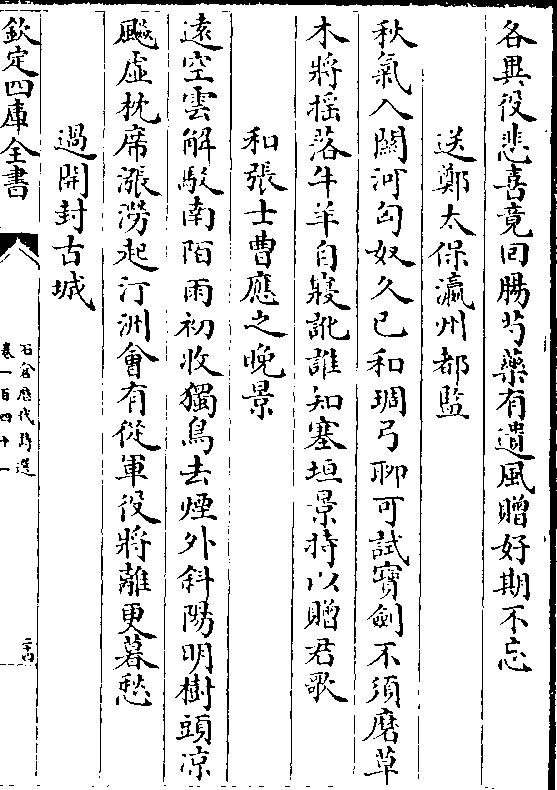 各異役悲喜竟回腸芍藥有遺風贈好期不忘
送鄭太保瀛州都監
秋氣入關河匈奴久已和琱弓聊可試寶劍不須磨草
木將揺落牛羊自寢訛誰知塞垣景持以贈君歌
和張士曹應之晚景
遠空雲解駮南陌雨初收獨鳥去煙外斜陽明樹頭凉
飈虛枕席漲潦起汀洲會有從軍役將離更暮愁
過開封古城
欽定四庫全書
石倉歴代詩選
卷一百四十一